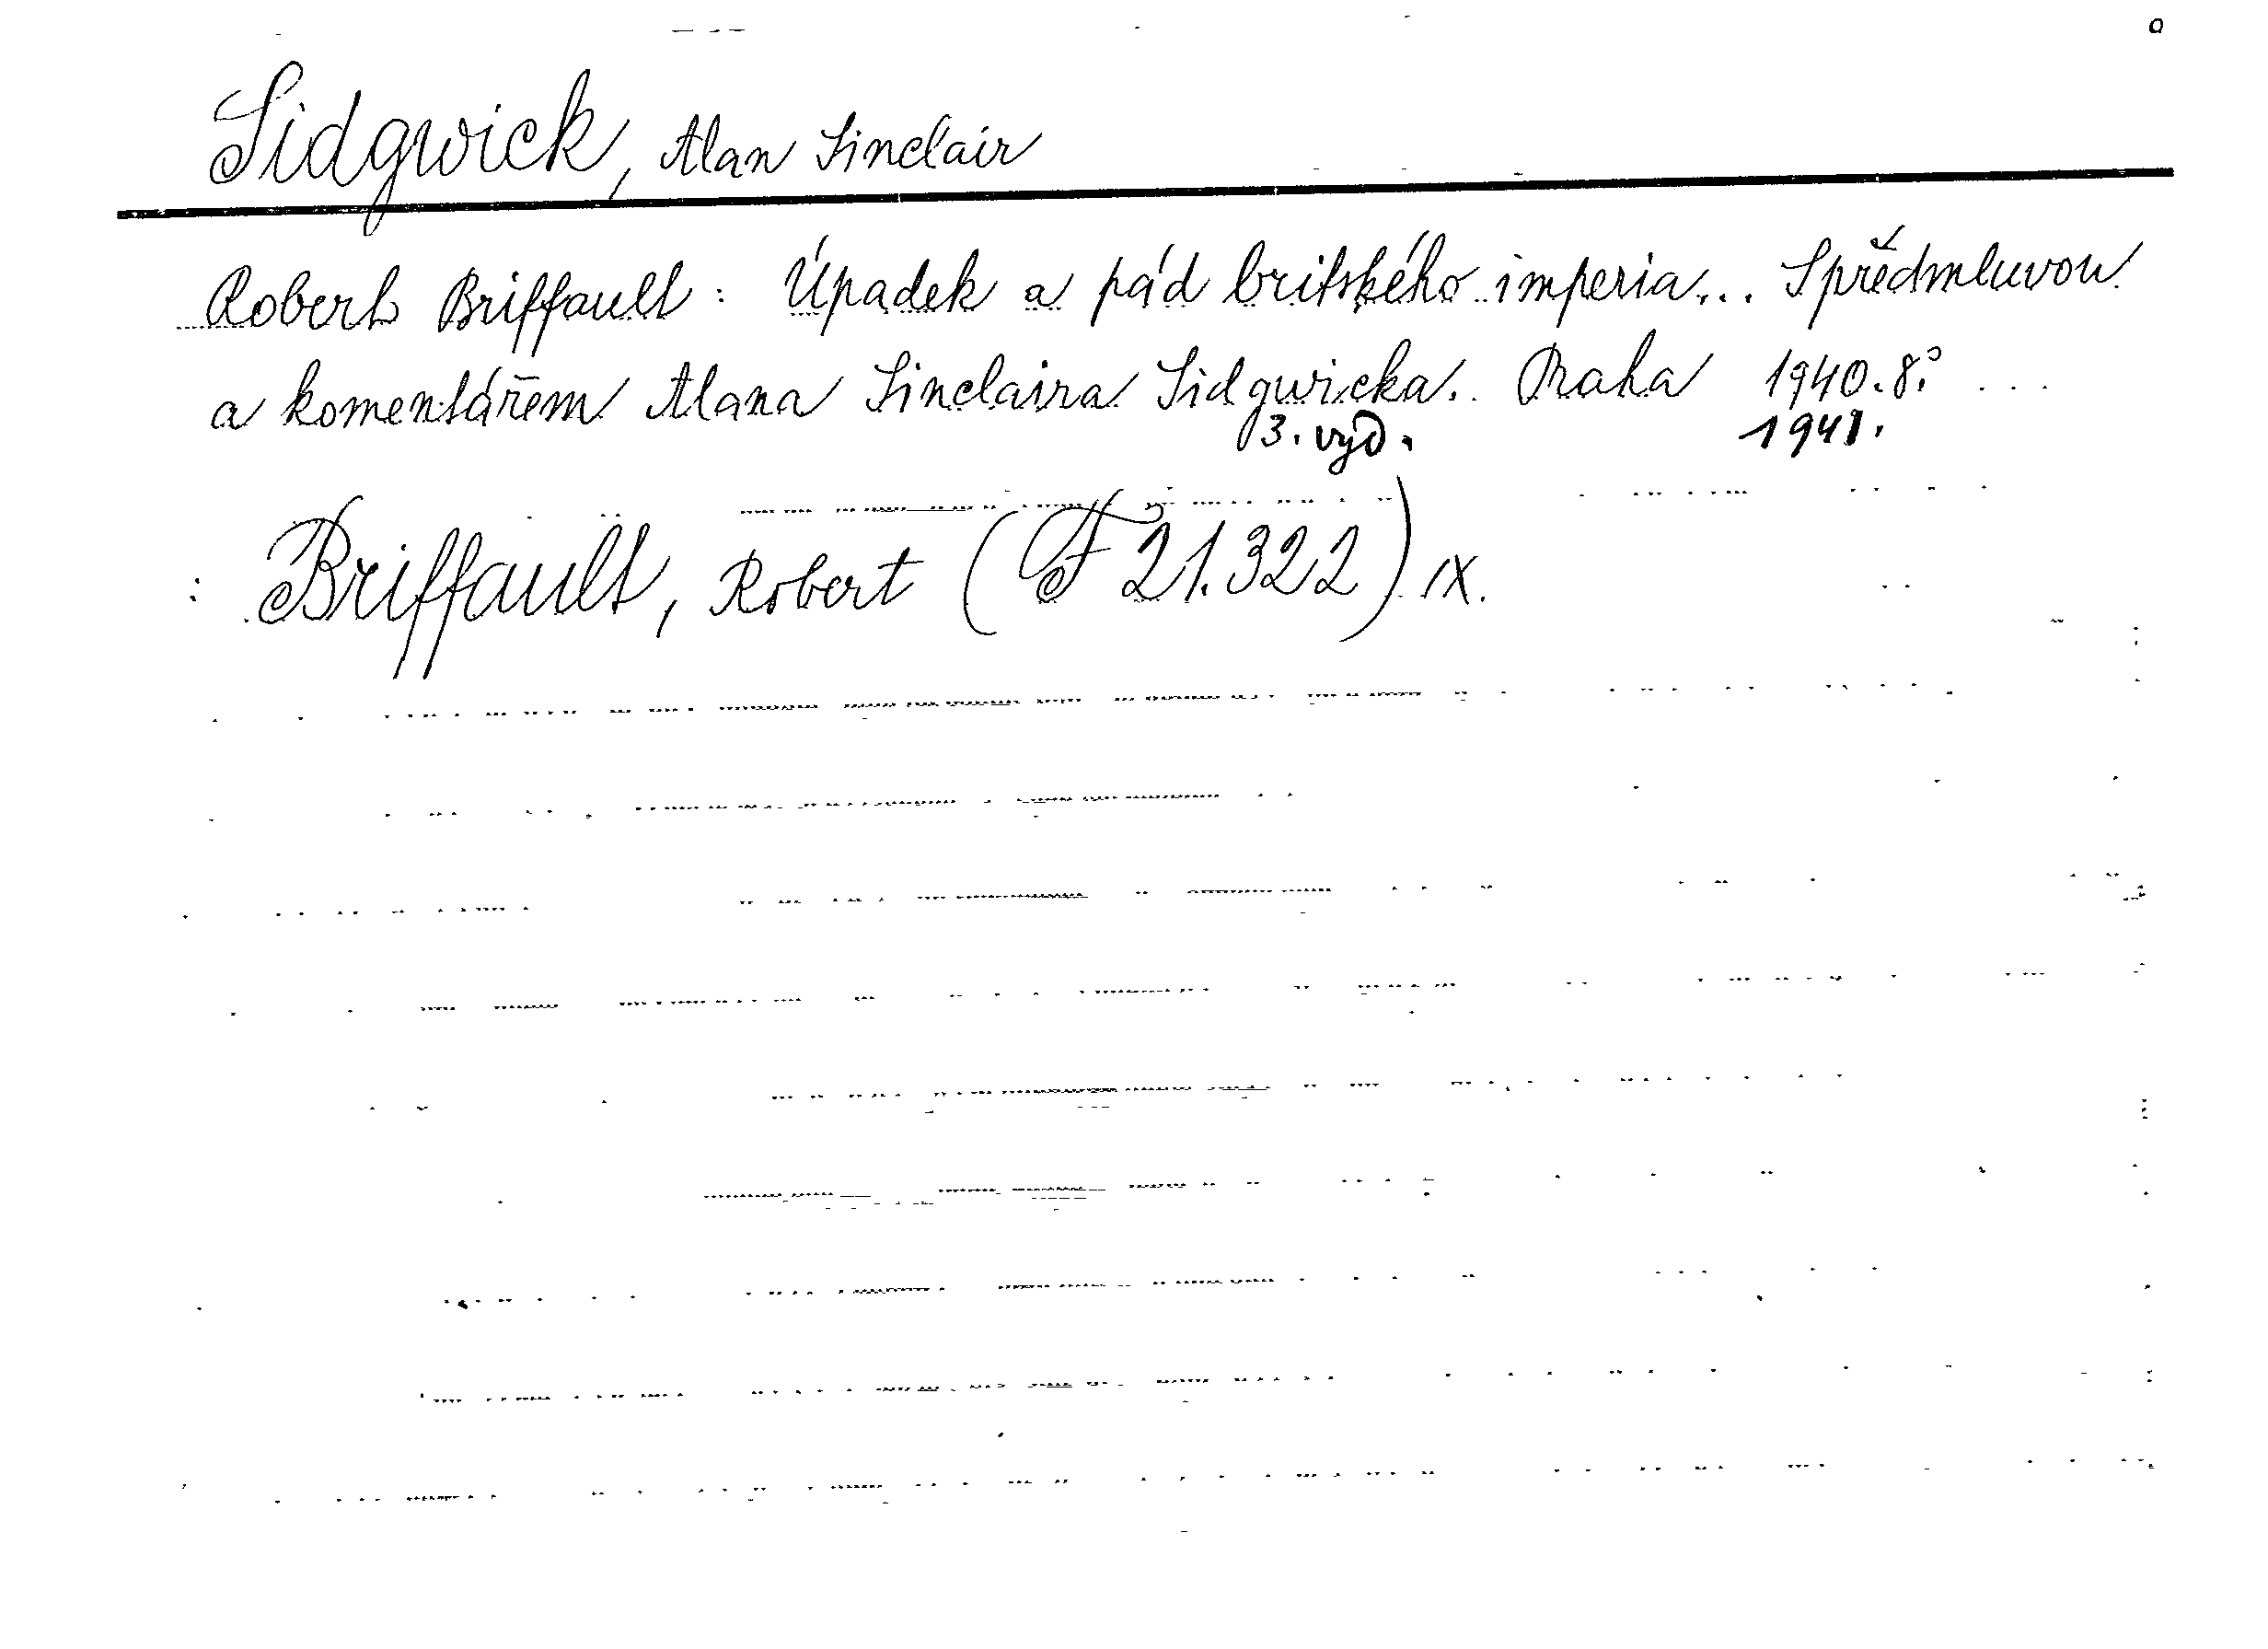 a
Sidgwick, Alan Sinclair
Robert Briffault: Úpadek a pád britského imperia... S předmluvou
a komentářem Alana Sinclaira Sidgwicka. Praha 1940. 8°. ...
3. vyd. 1941.
: Briffault, Robert (F 21.322) IX.